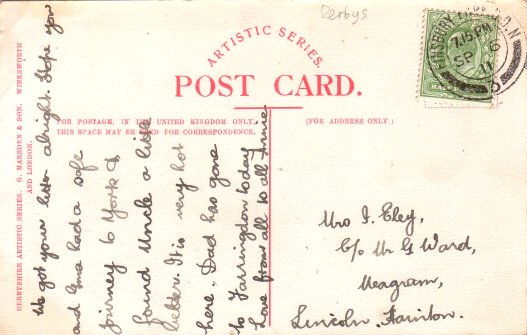 Derbys
ARTISTIC SERIES.
POST CARD.
FOR POSTAGE, IN THE UNITED KINGDOM ONLY,
THIS SPACE MAY BE USED FOR CORRESPONDENCE.
(FOR ADDRESS ONLY.)
DERBYSHIRE ARTISTIC SERIES. G. MARSDEN & SON, WIRKSWORTH
AND LONDON.
We got your letter alright. Hope you
had a safe
journey to York &
found Uncle a little
better. It is very hot
here. Dad has gone
to Farringdon today
Love from all to all Annie.
Mrs I. Eley,
C/o Mr G Ward,
Meagram,
Lincoln
7.15 PM
SP 6
11